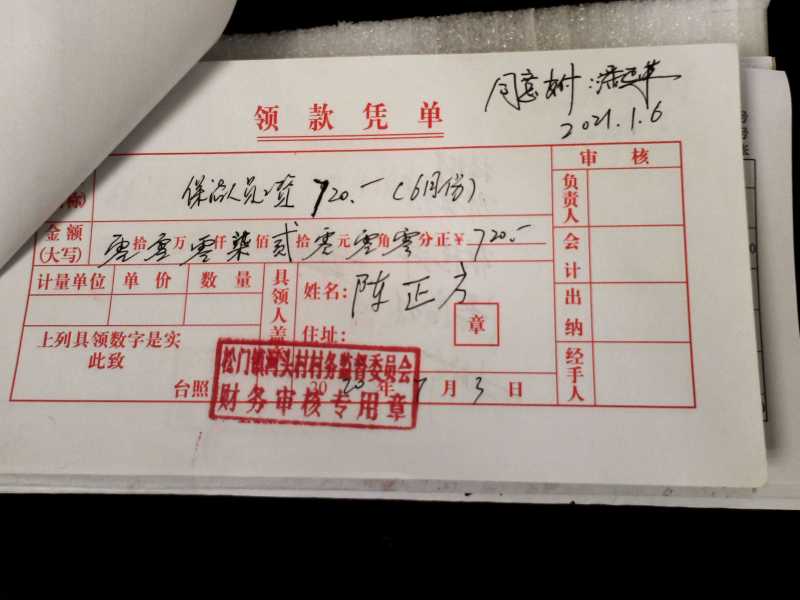 同意支付:潘
2021.1.6
领款凭单
审核
保洁人员工资 720.-(6月份)
称)
负责人
金额
(大写)
零拾零万零仟柒佰贰拾零元零角零分正¥720.-
会计
计量单位 单价 数量
具领人盖章
姓名:陈正方
章
出纳
上列具领数字是实
此致
住址:
经手人
台照
2020年7月3日
松门镇河头村村务监督委员会
财务审核专用章